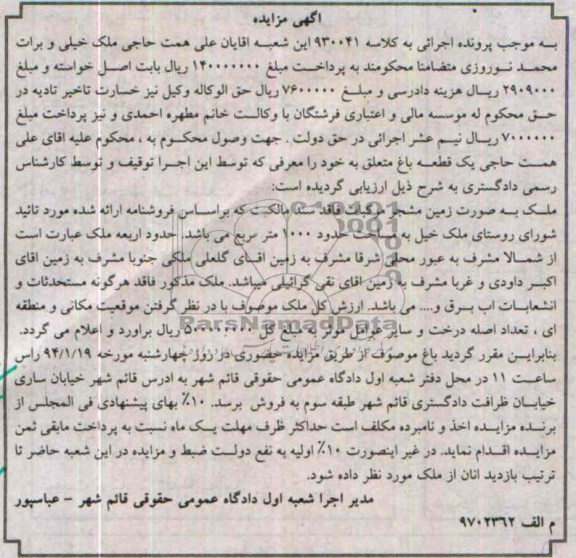 آگهی مزایده
به موجب پرونده اجرائی به کلاسه ۹۳۰۰۴۱ این شعبه اقایان علی همت حاجی ملک خیلی و برات
محمد نوروزی متضامنا محکومند به پرداخت مبلغ ۱۴۰۰۰۰۰۰۰ ریال بابت اصل خواسته و مبلغ
۲۹۰۹۰۰۰ ریال هزینه دادرسی و مبلغ ۷۶۰۰۰۰۰ ریال حق الوکاله وکیل نیز خسارت تاخیر تادیه در
حق محکوم له موسسه مالی و اعتباری فرشتگان با وکالت خانم مطهره احمدی و نیز پرداخت مبلغ
۷۰۰۰۰۰۰ ریال نیم عشر اجرائی در حق دولت . جهت وصول محکوم به ، محکوم علیه اقای علی
همت حاجی یک قطعه باغ متعلق به خود را معرفی که توسط این اجرا توقیف و توسط کارشناس
رسمی دادگستری به شرح ذیل ارزیابی گردیده است:
ملک به صورت زمین مشجر مالکیت فاقد سند مالکیت که براساس فروشنامه ارائه شده مورد تائید
شورای روستای ملک خیل به مساحت حدود ۱۰۰۰ متر مربع می باشد. حدود اربعه ملک عبارت است
از شمالا مشرف به عبور محلی شرقا مشرف به زمین اقای گلعلی ملکی جنوبا مشرف به زمین اقای
اکبر داودی و غربا مشرف به زمین اقای نقی گرائیلی میباشد. ملک مذکور فاقد هرگونه مستحدثات و
انشعابات اب برق و.... می باشد. ارزش کل ملک موصوف با در نظر گرفتن موقعیت مکانی و منطقه
ای ، تعداد اصله درخت و سایر عوامل موثر به مبلغ کل ریال براورد و اعلام می گردد.
بنابراین مقرر گردید باغ موصوف از طریق مزایده حضوری در روز چهارشنبه مورخه ۹۴/۱/۱۹ راس
ساعت ۱۱ در محل دفتر شعبه اول دادگاه عمومی حقوقی قائم شهر به ادرس قائم شهر خیابان ساری
خیابان ظرافت دادگستری قائم شهر طبقه سوم به فروش برسد. ۱۰٪ بهای پیشنهادی فی المجلس از
برنده مزایده اخذ و نامبرده مکلف است حداکثر ظرف مهلت یک ماه نسبت به پرداخت مابقی ثمن
مزایده اقدام نماید. در غیر اینصورت ۱۰٪ اولیه به نفع دولت ضبط و مزایده در این شعبه حاضر تا
ترتیب بازدید انان از ملک مورد نظر داده شود.
مدیر اجرا شعبه اول دادگاه عمومی حقوقی قائم شهر - عباسپور
م الف ۹۷۰۲۳۶۲
ParsNamadData